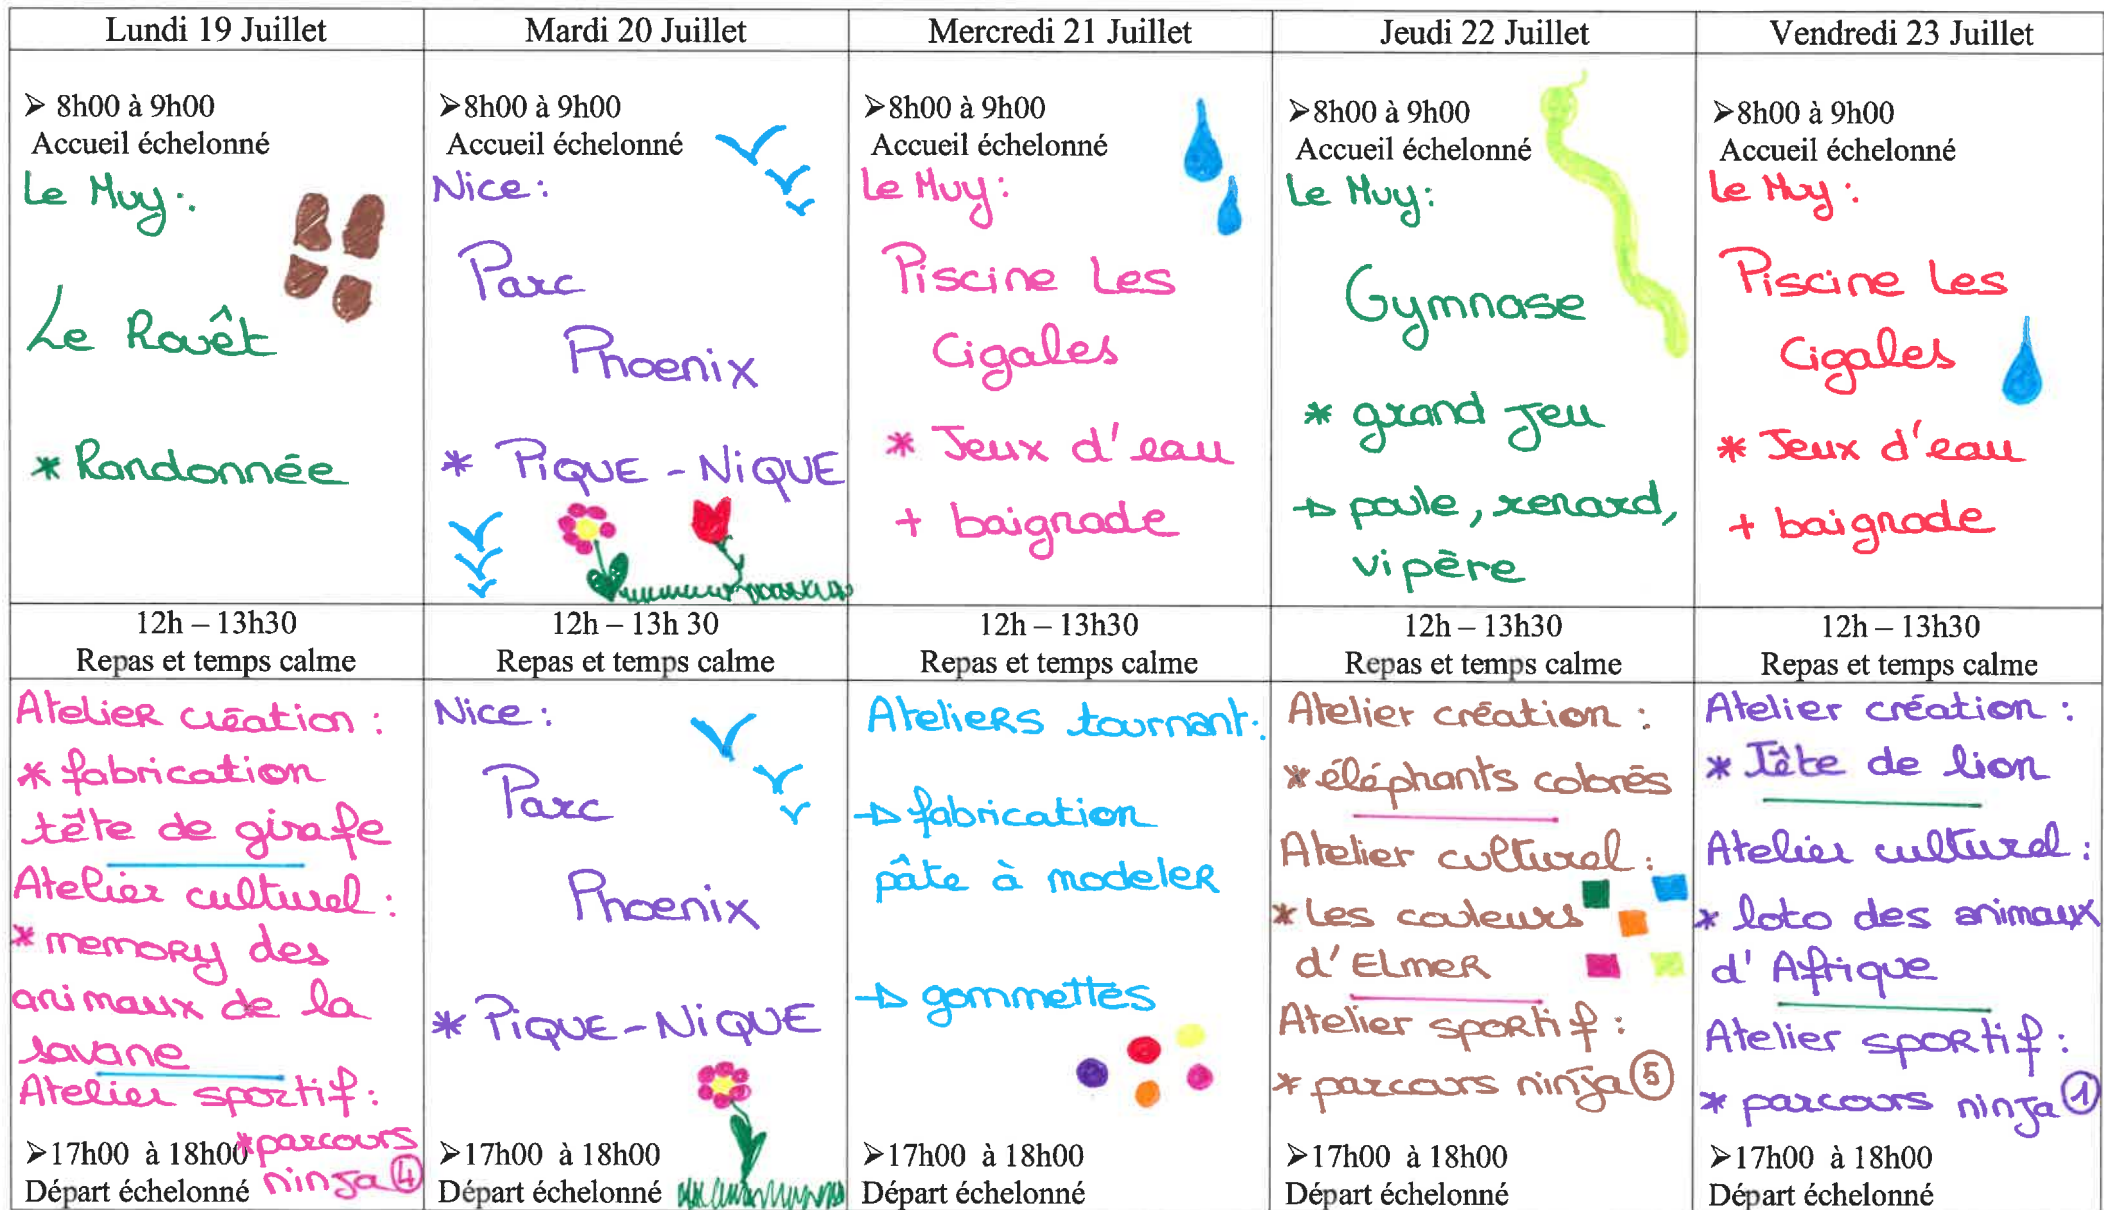 Lundi 19 Juillet
Mardi 20 Juillet
Mercredi 21 Juillet
Jeudi 22 Juillet
Vendredi 23 Juillet
➢ 8h00 à 9h00
Accueil échelonné
Le Muy :
Le Rouêt
* Randonnée
➢8h00 à 9h00
Accueil échelonné
Nice :
Parc
Phoenix
* PIQUE - NIQUE
➢8h00 à 9h00
Accueil échelonné
Le Muy :
Piscine Les
Cigales
* Jeux d'eau
+ baignade
➢8h00 à 9h00
Accueil échelonné
Le Muy :
Gymnase
* grand jeu
→ poule, renard,
vipère
➢8h00 à 9h00
Accueil échelonné
Le Muy :
Piscine Les
Cigales
* Jeux d'eau
+ baignade
12h – 13h30
Repas et temps calme
12h – 13h 30
Repas et temps calme
12h – 13h30
Repas et temps calme
12h – 13h30
Repas et temps calme
12h – 13h30
Repas et temps calme
Atelier création :
* fabrication
tête de girafe
Atelier culturel :
* memory des
animaux de la
savane
Atelier sportif :
* parcours
ninja 4
➢17h00 à 18h00
Départ échelonné
Nice :
Parc
Phoenix
* PIQUE - NIQUE
➢17h00 à 18h00
Départ échelonné
Ateliers tournant :
→ fabrication
pâte à modeler
→ gommettes
➢17h00 à 18h00
Départ échelonné
Atelier création :
* éléphants colorés
Atelier culturel :
* Les couleurs
d'Elmer
Atelier sportif :
* parcours ninja 5
➢17h00 à 18h00
Départ échelonné
Atelier création :
* Tête de lion
Atelier culturel :
* loto des animaux
d'Afrique
Atelier sportif :
* parcours ninja 1
➢17h00 à 18h00
Départ échelonné